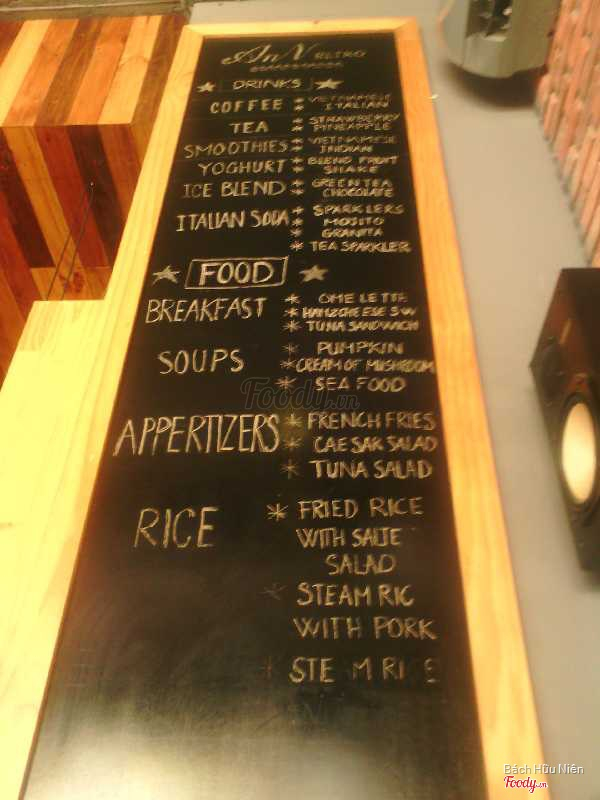 AnV RETRO
DRINKS
COFFEE * VIETNAMESE
* ITALIAN
TEA * STRAWBERRY
* PINEAPPLE
SMOOTHIES * VIETNAMESE
* INDIAN
YOGHURT * BLEND FRUIT
* SHAKE
ICE BLEND * GREEN TEA
* CHOCOLATE
ITALIAN SODA * SPARKLERS
* MOJITO
* GRANITA
* TEA SPARKLER
FOOD
BREAKFAST * OMELETTE
* HAM&CHEESE SW
* TUNA SANDWICH
SOUPS * PUMPKIN
* CREAM OF MUSHROOM
* SEA FOOD
Foody.vn
APPERTIZERS * FRENCH FRIES
* CAESAR SALAD
* TUNA SALAD
RICE * FRIED RICE
WITH SALTE
SALAD
* STEAM RIC
WITH PORK
* STE M RICE
Bách Hữu Niên
Foody.vn